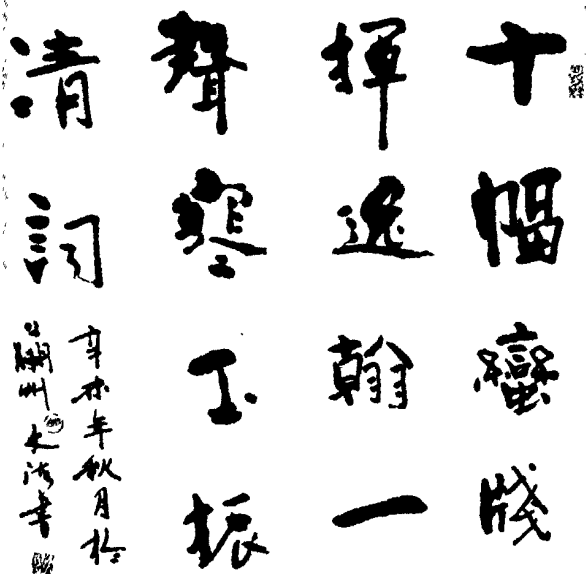 十幅蠻牋
揮逸翰一
聲寒玉振
清詞
辛未年秋月於
蘭州大書